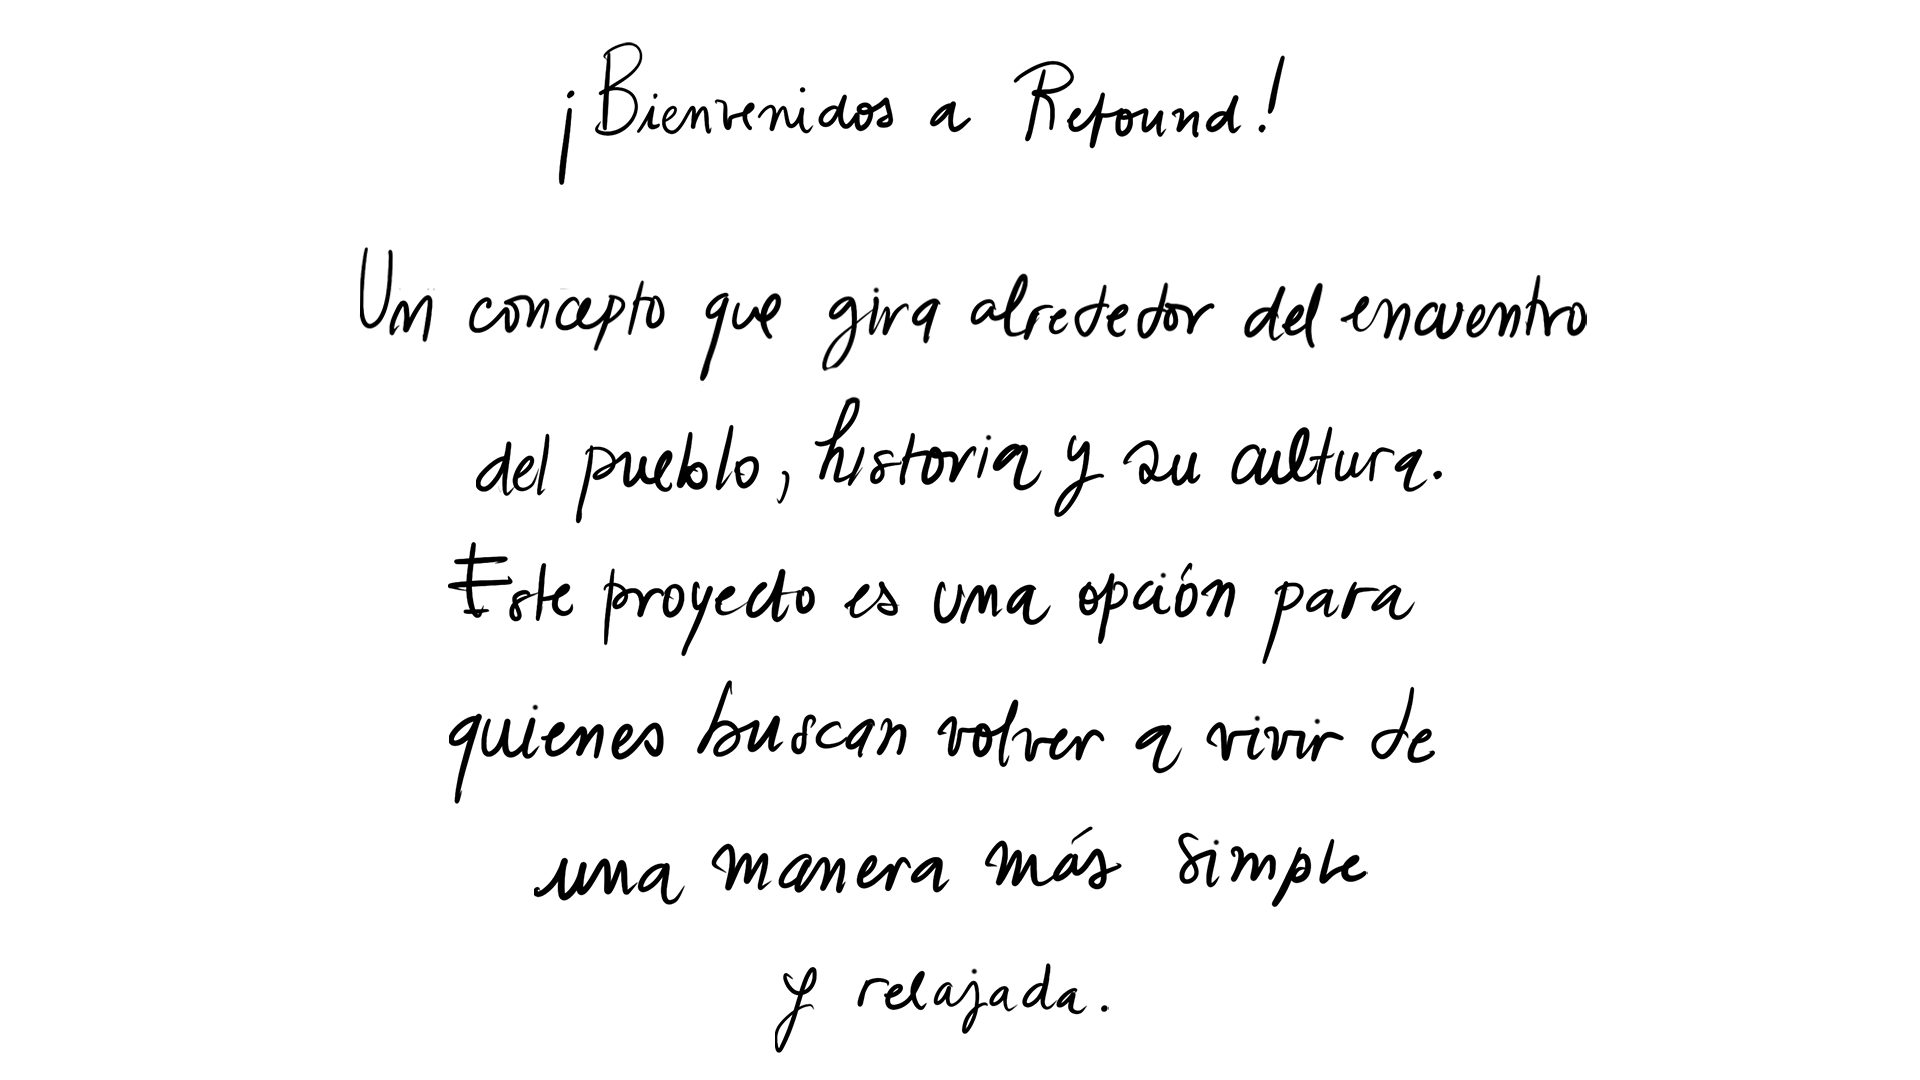 ¡Bienvenidos a Refound!
Un concepto que gira alrededor del encuentro
del pueblo, historia y su cultura.
Este proyecto es una opción para
quienes buscan volver a vivir de
una manera más simple
y relajada.